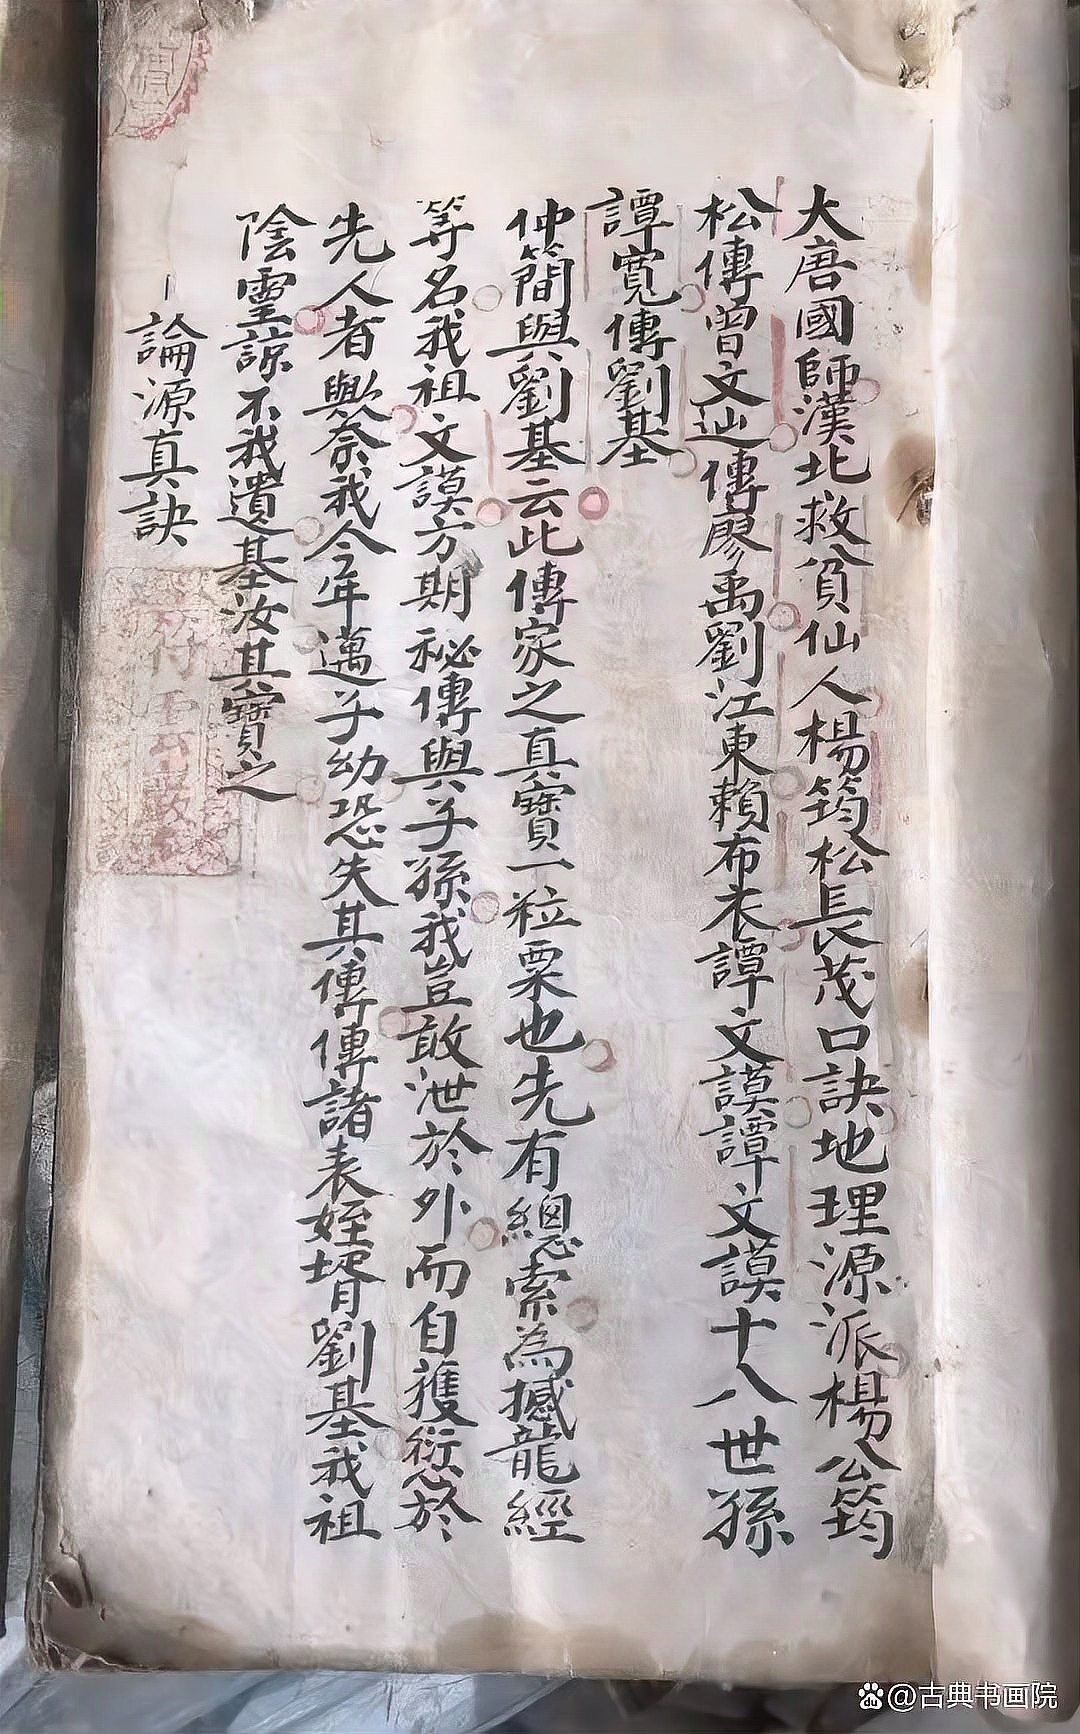 大唐國師漢北救貧仙人楊筠松長茂口訣地理源派楊公筠
松傳曾文辿傳廖禹劉江東賴布衣譚文謨譚文謨十八世孫
譚寬傳劉基
仲簡與劉基云此傳家之真寶一粒粟也先有總索為撼龍經
等名我祖文謨方期秘傳與子孫我豈敢泄於外而自獲愆於
先人者歟奈我今年邁子幼恐失其傳傳諸表姪壻劉基我祖
陰靈諒不我遺基汝其寶之
論源真訣
@古典书画院